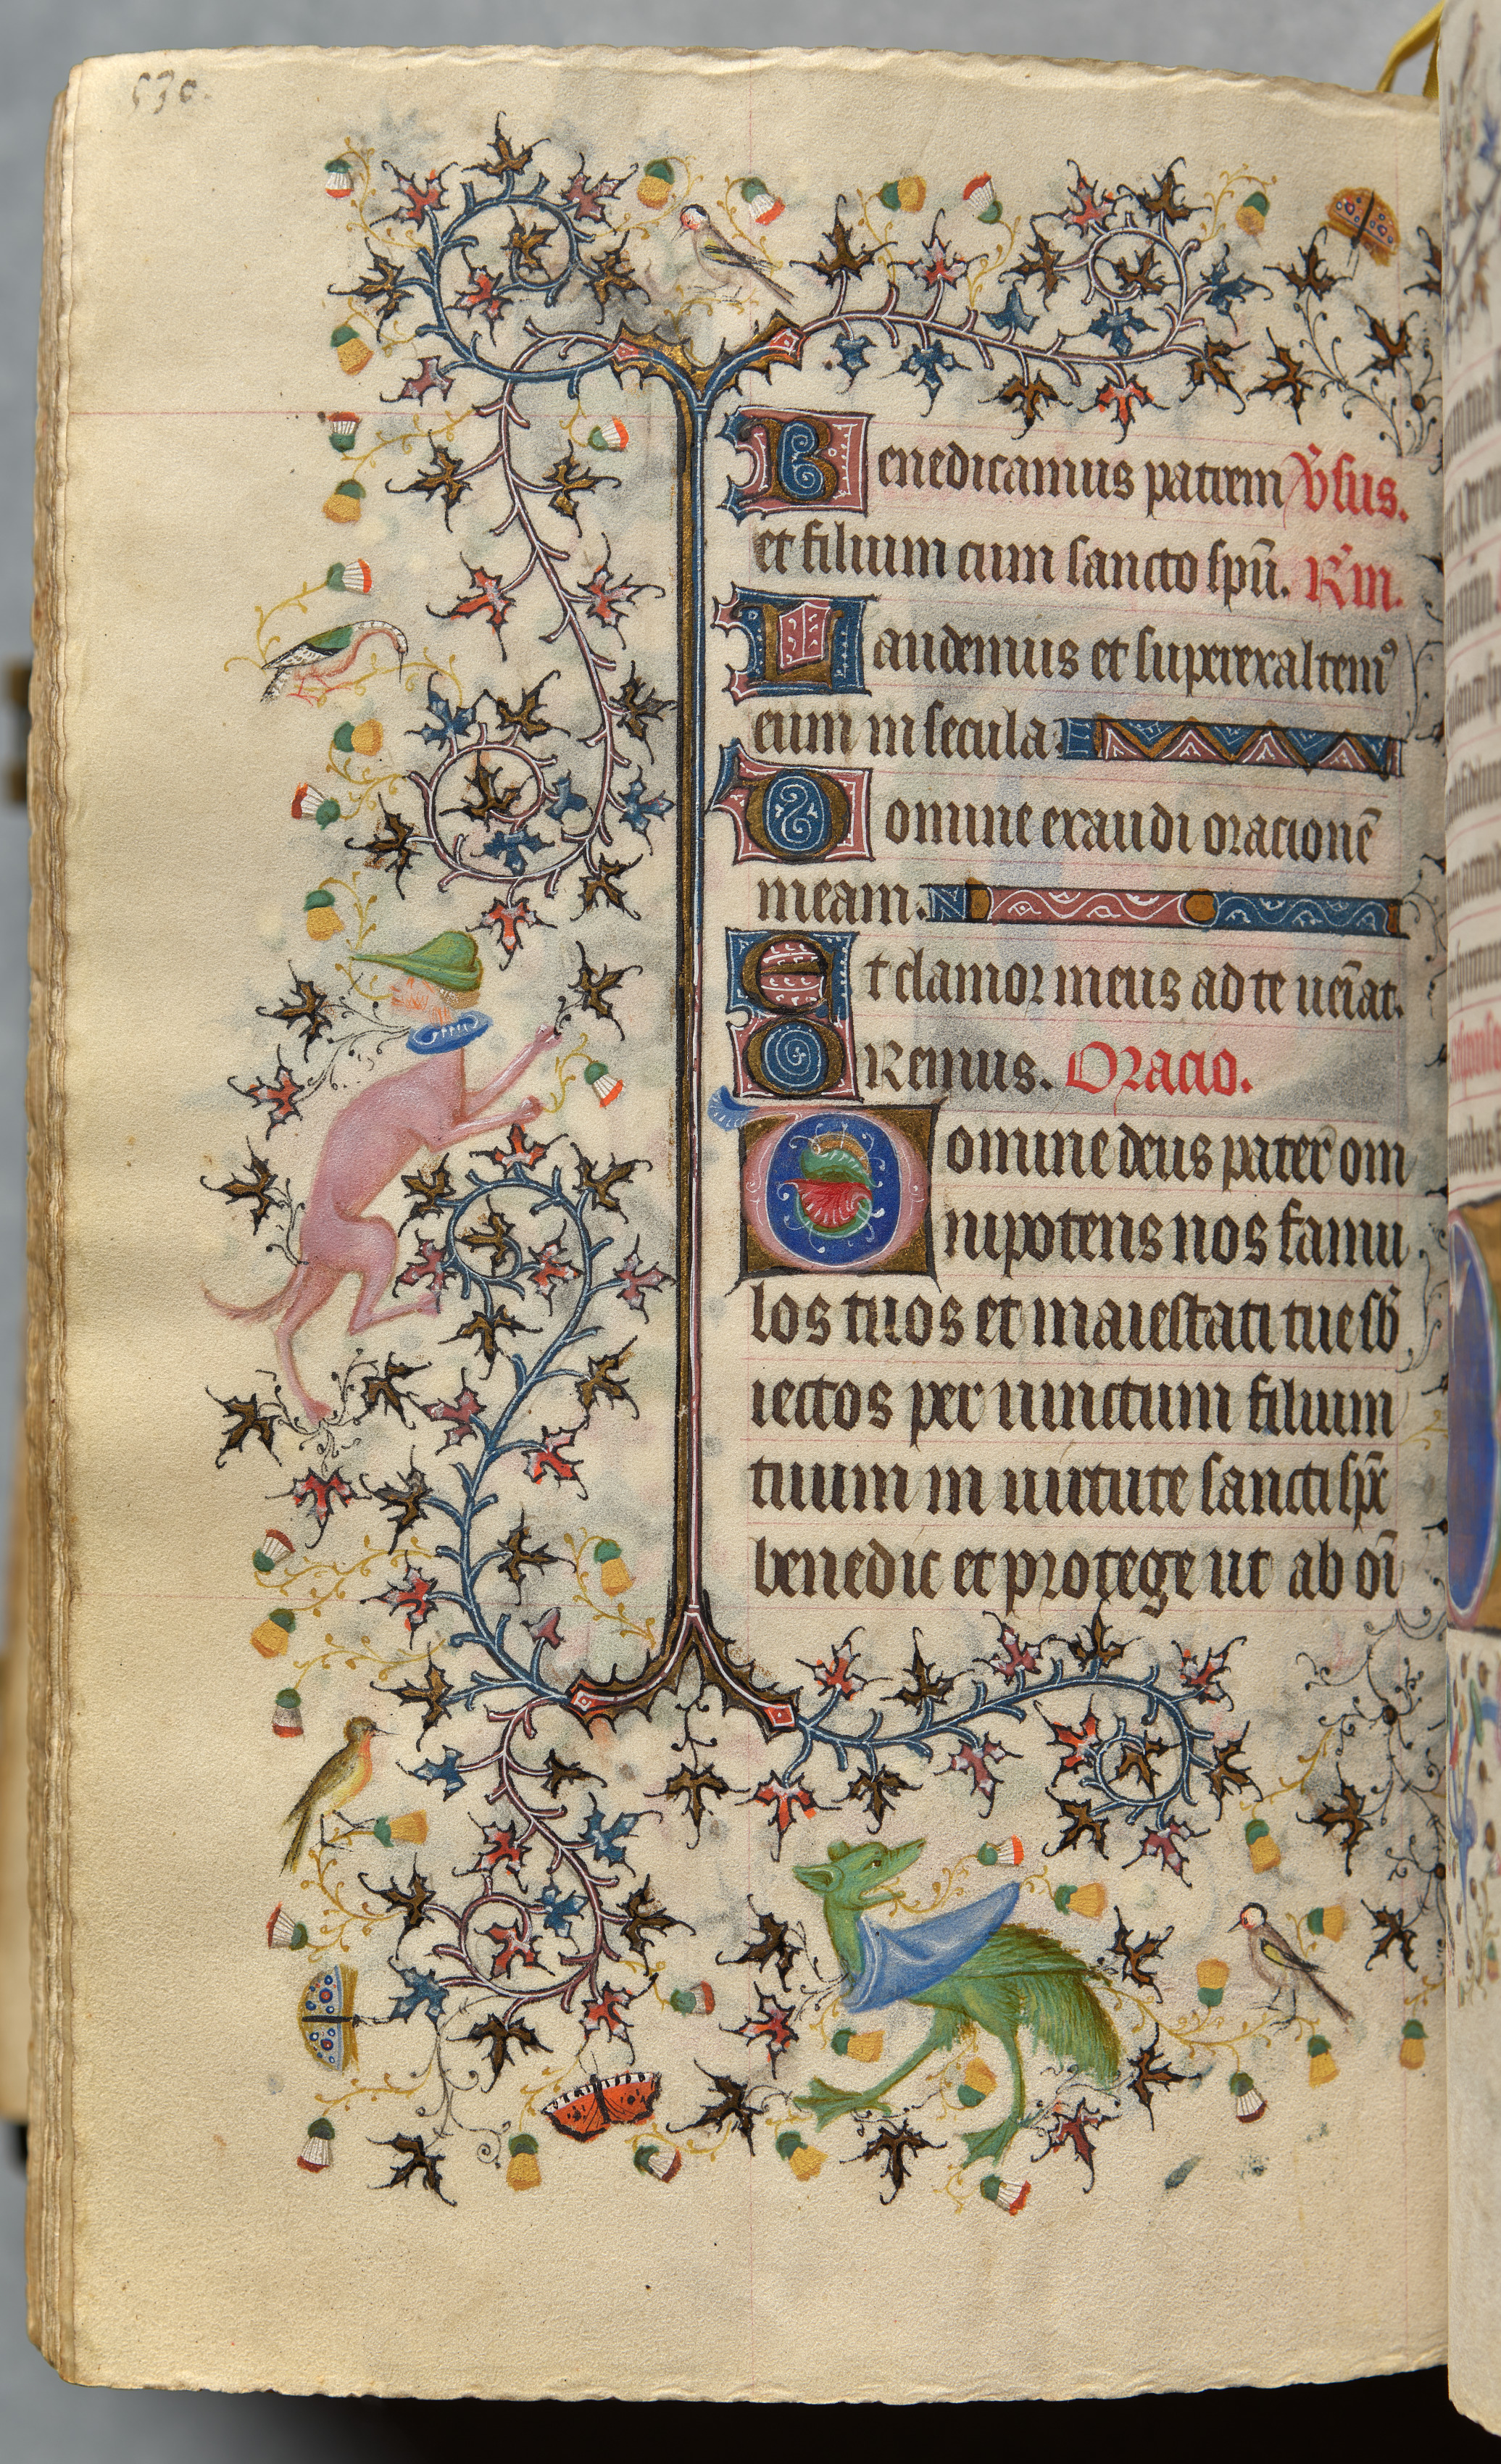 530.
Benedicamus patrem v̄sus.
et filium cum sancto spū. R̄m.
Laudemus et superexaltem⁹
eum in secula.
Domine exaudi oracionē
meam.
Et clamor meus ad te ueīat.
Oremus. Oracio.
Domine deus pater om
nipotens nos famu
los tuos et maiestati tue sb̄
iectos per unictum filium
tuum in uirtute sancti sp̄c
benedic et protege ut ab oī